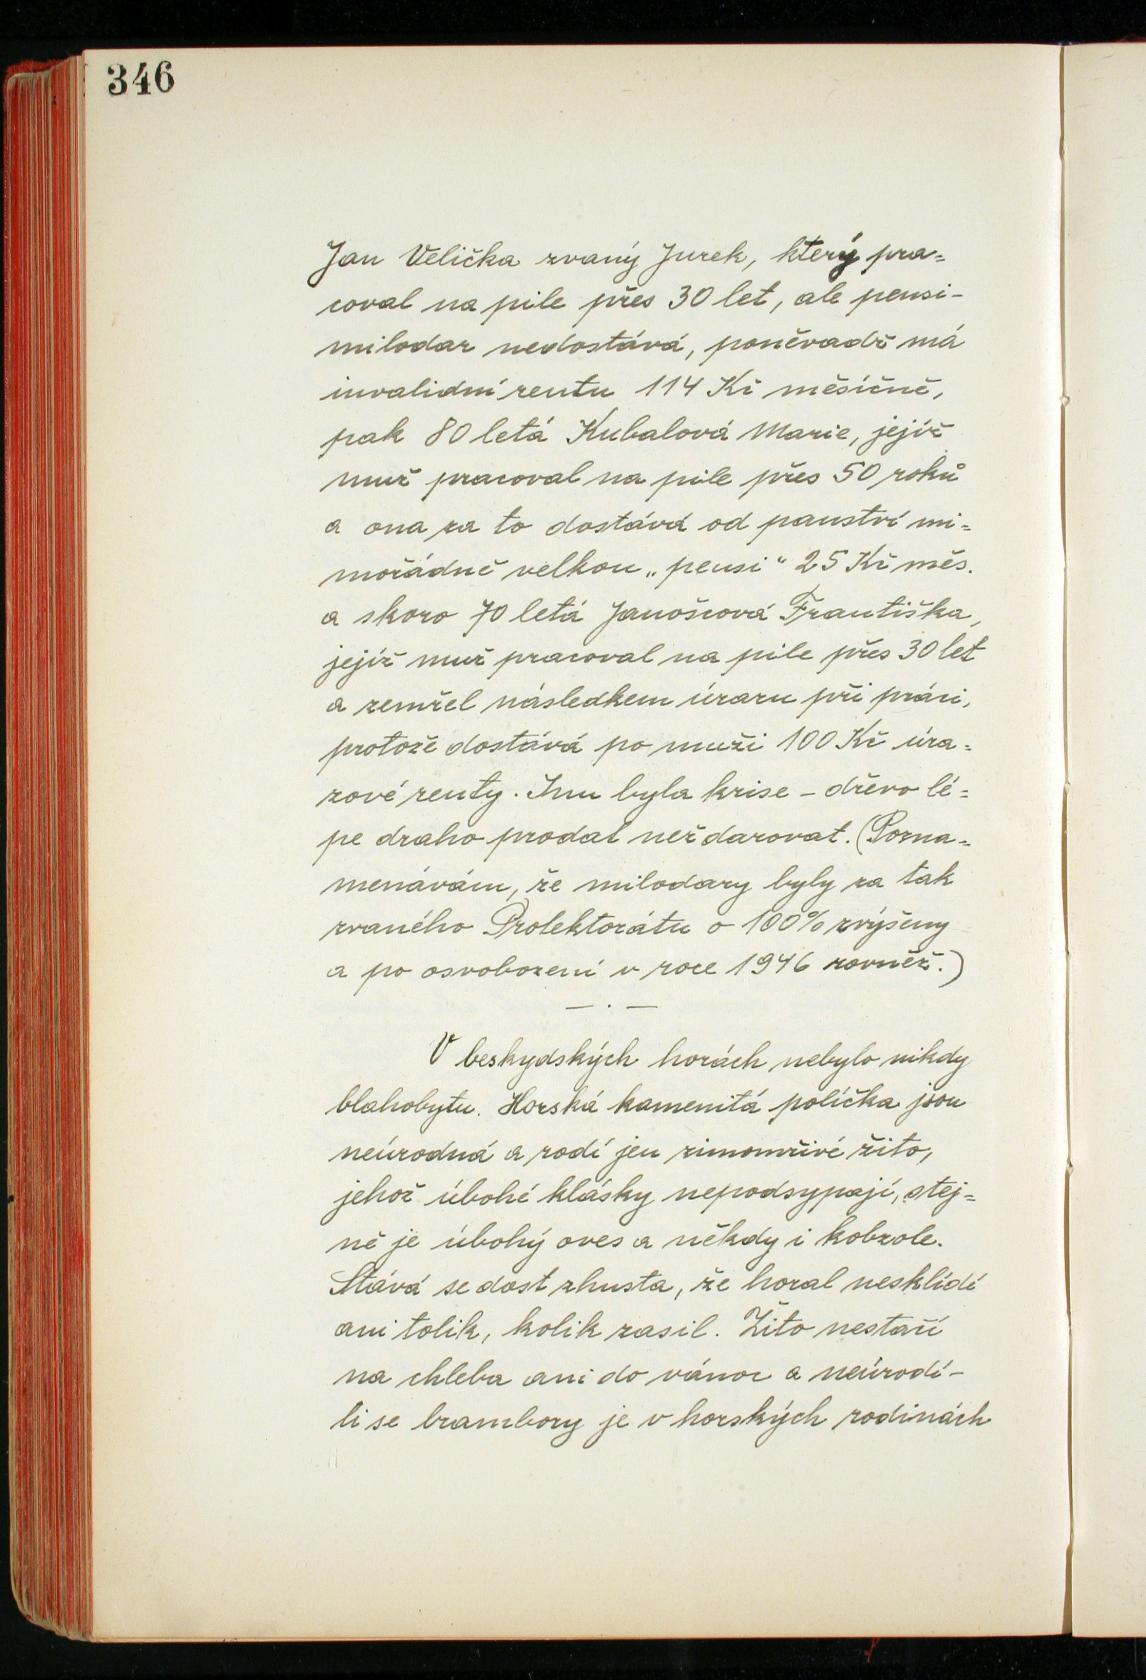 346
Jan Velička zvaný Jurek, který pra=
coval na pile přes 30 let, ale pensi-
milodar nedostává, poněvadž má
invalidní rentu 114 Kč měsíčně,
pak 80 letá Kubalová Marie, jejíž
muž pracoval na pile přes 50 roků
a ona za to dostává od panství mi=
mořádně velkou „pensi“ 25 Kč měs.
a skoro 70 letá Janošcová Františka,
jejíž muž pracoval na pile přes 30 let
a zemřel následkem úrazu při práci,
protože dostává po muži 100 Kč úra=
zové renty. Inu byla krise – dřevo lé=
pe draho prodat než darovat. (Pozna=
menávám, že milodary byly za tak
zvaného Protektorátu o 100% zvýšeny
a po osvobození v roce 1946 rovněž.)
— . —
V beskydských horách nebylo nikdy
blahobytu. Horská kamenitá políčka jsou
neúrodná a rodí jen zimomřivé žito,
jehož úbohé klásky nepodsypají, stej=
ně je úbohý oves a někdy i kobzole.
Stává se dost zhusta, že horal nesklídí
ani tolik, kolik zasil. Žito nestačí
na chleba ani do vánoc a neúrodí-
li se brambory je v horských rodinách